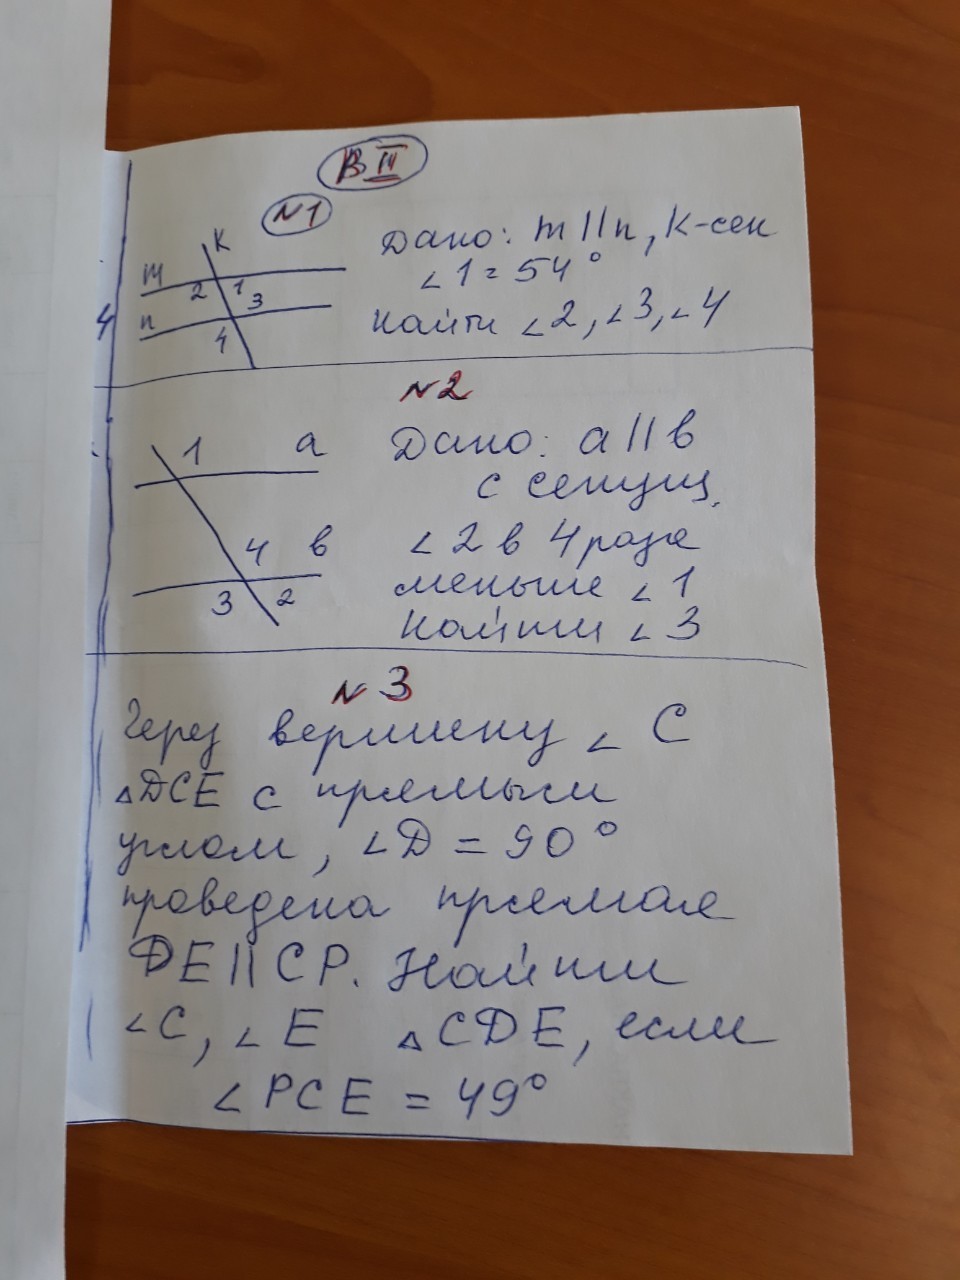 В III
№1
Дано: m || n, К-сек
∠1 = 54°
Найти ∠2, ∠3, ∠4
К
m
2 1
3
n
4
4
№2
Дано: a || в
с секущ.
∠2 в 4 раза
меньше ∠1
Найти ∠3
1 a
4 в
3 2
№3
Через вершину ∠ С
△DCE с прямым
углом, ∠D = 90°
проведена прямая
DE || CP. Найти
∠C, ∠E △CDE, если
∠PCE = 49°